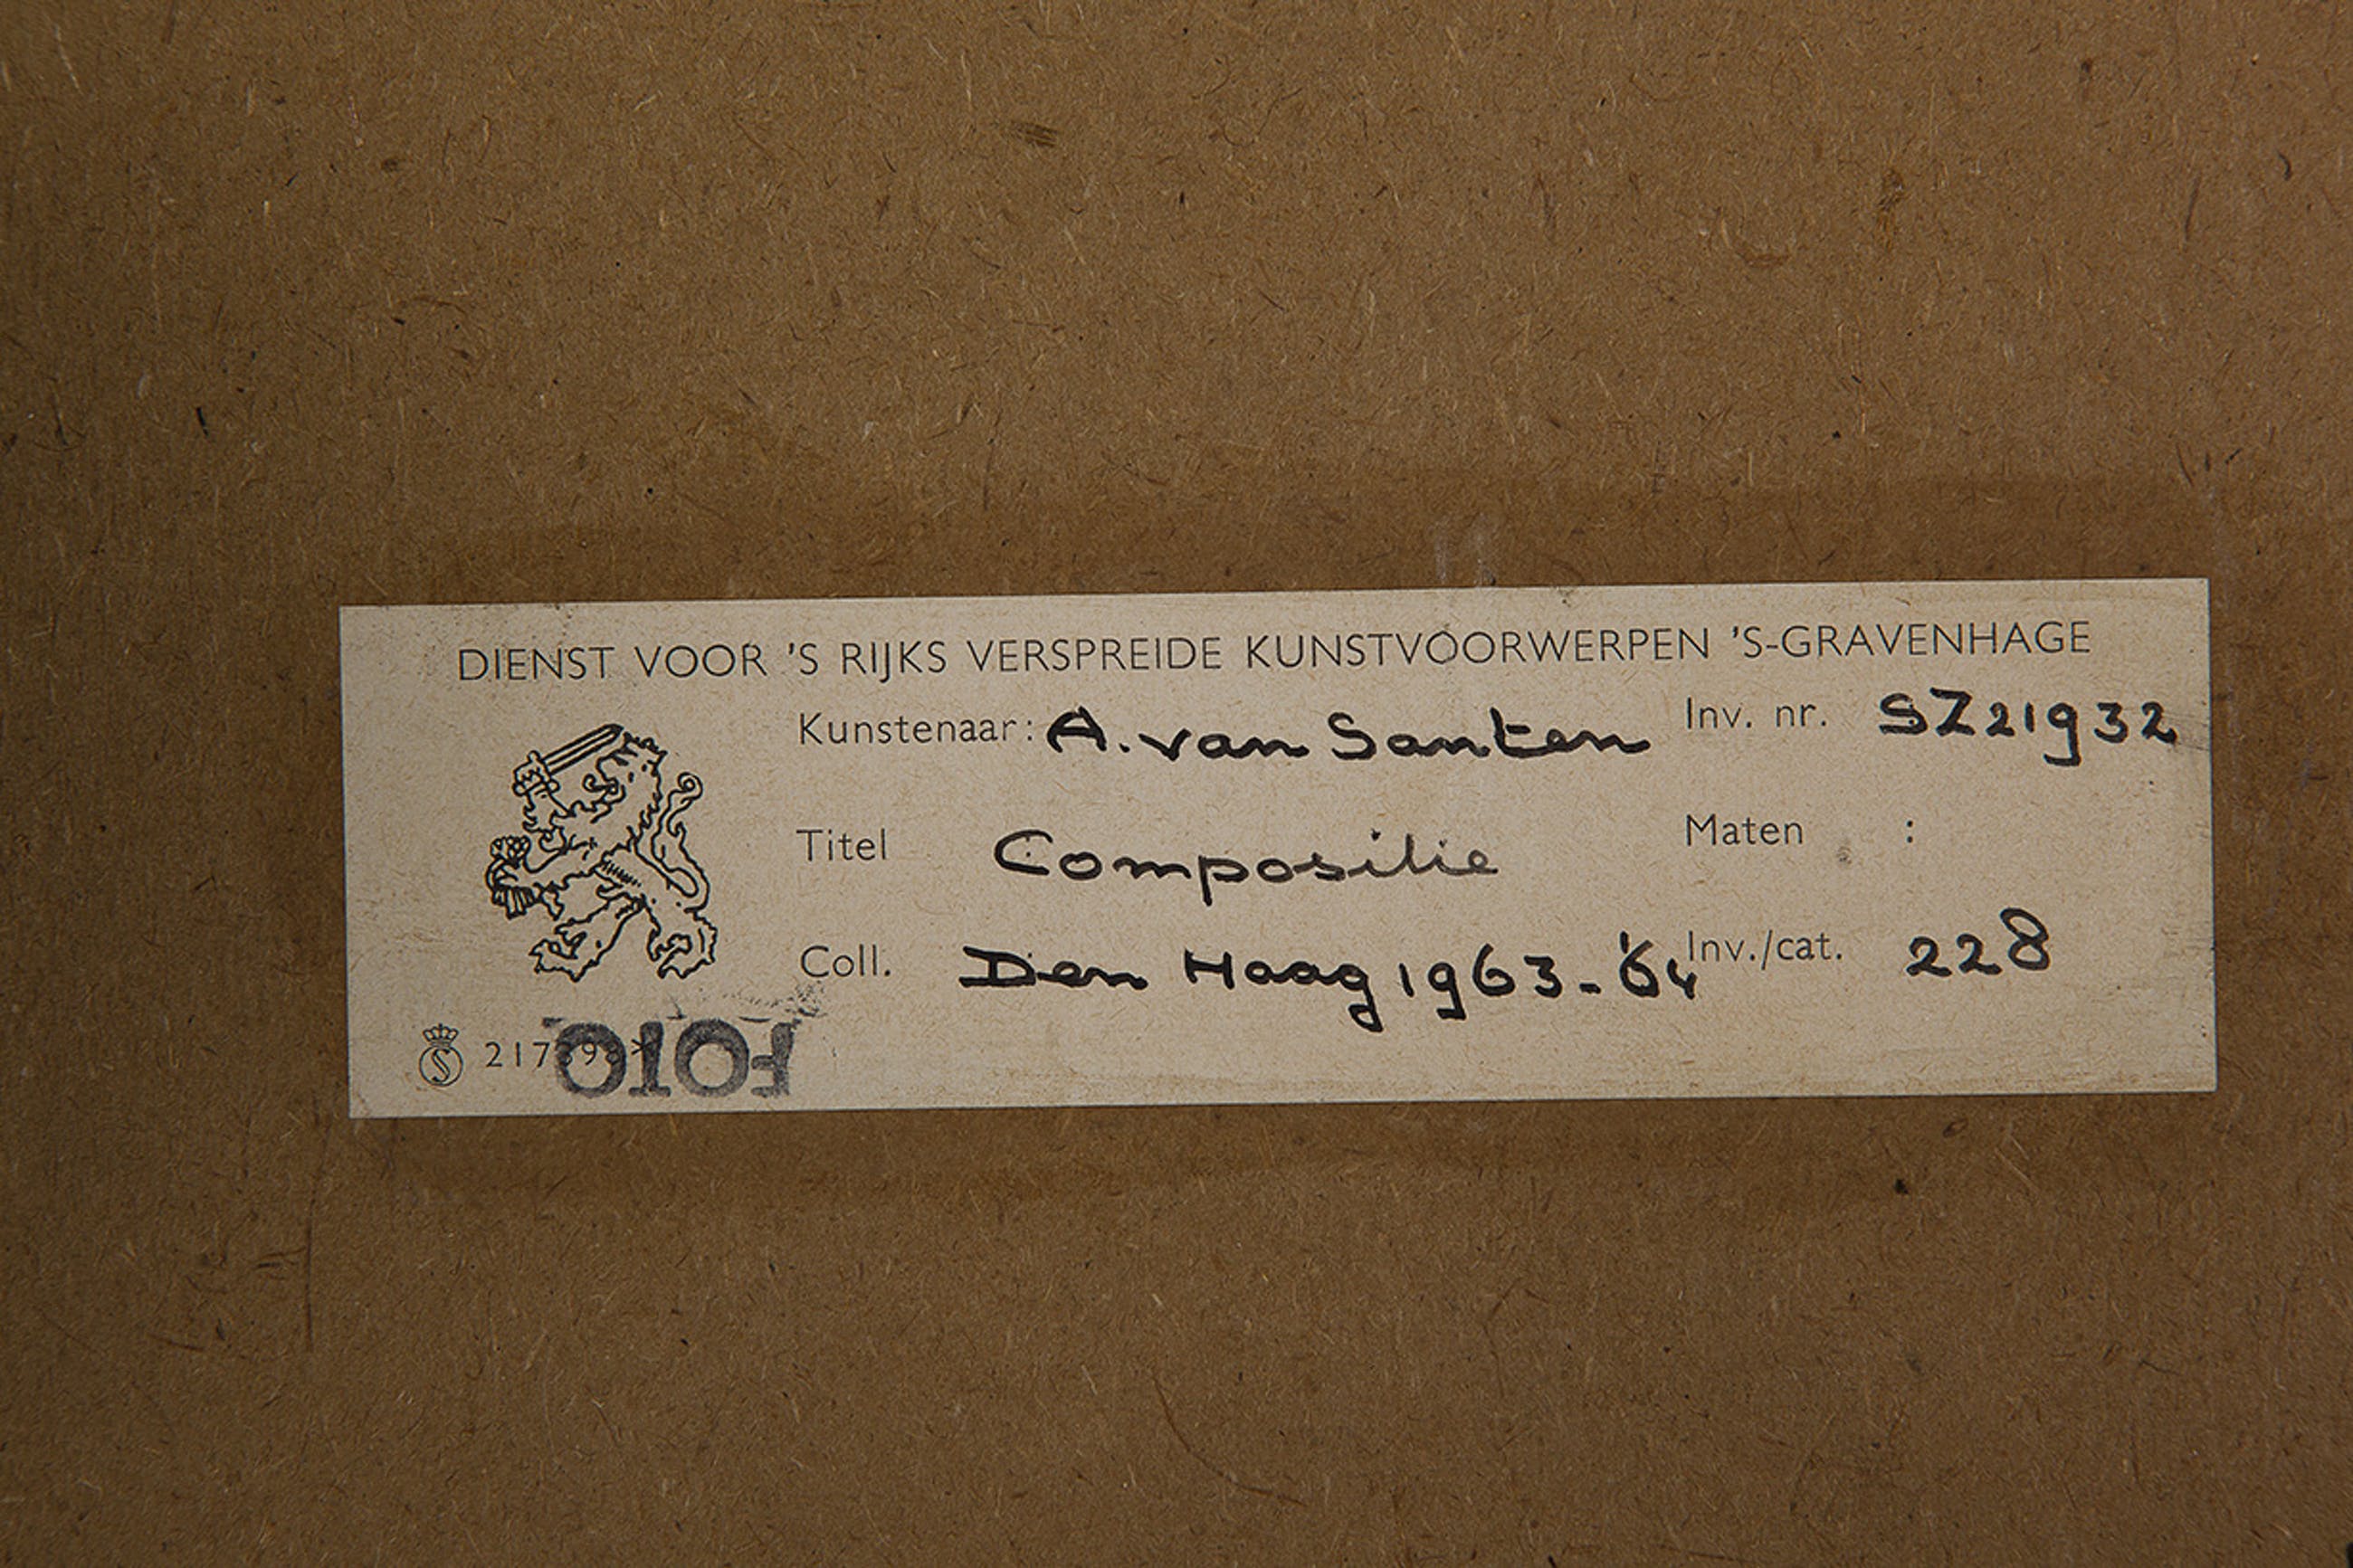 DIENST VOOR 'S RIJKS VERSPREIDE KUNSTVOORWERPEN 'S-GRAVENHAGE
Kunstenaar: A. van Santen Inv. nr. SZ21932
Titel Compositie Maten :
Coll. Den Haag 1963-'64 Inv./cat. 228
FOTO